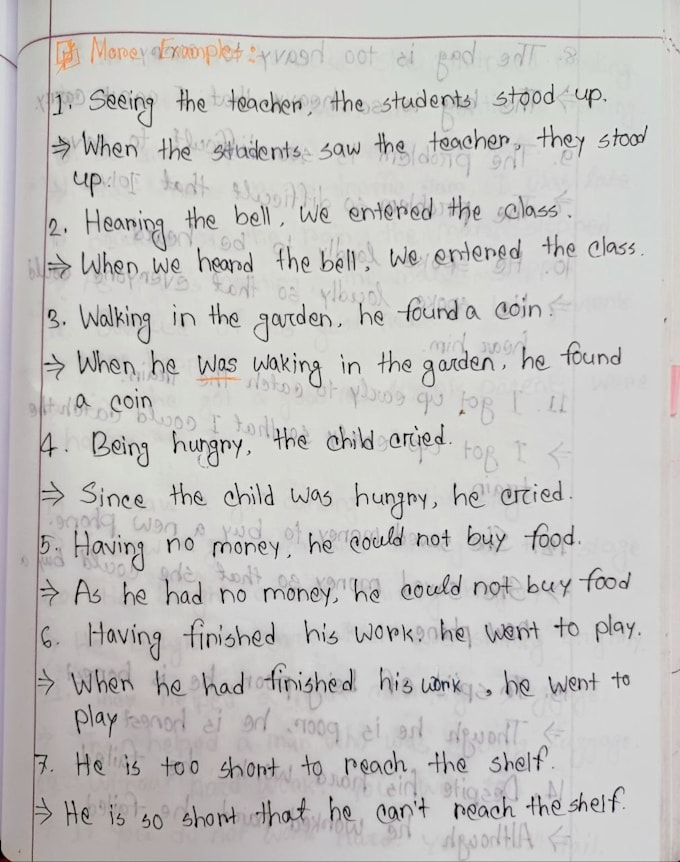 More Examples:
1. Seeing the teacher, the students stood up.
⇒ When the students saw the teacher, they stood
up.
2. Hearing the bell, we entered the class.
⇒ When we heard the bell, we entered the class.
3. Walking in the garden, he found a coin.
⇒ When he was waking in the garden, he found
a coin
4. Being hungry, the child cried.
⇒ Since the child was hungry, he cried.
5. Having no money, he could not buy food.
⇒ As he had no money, he could not buy food
6. Having finished his work, he went to play.
⇒ When he had finished his work, he went to
play
7. He is too short to reach the shelf.
⇒ He is so short that he can't reach the shelf.